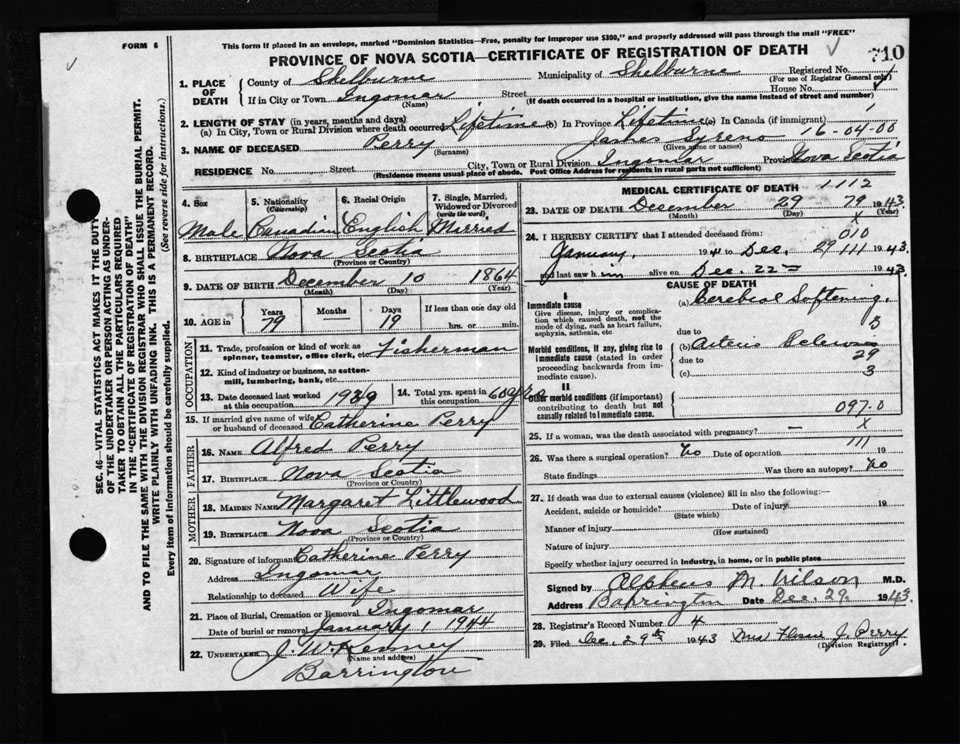 FORM 6
This form if placed in an envelope, marked "Dominion Statistics—Free, penalty for improper use $300," and properly addressed will pass through the mail "FREE"
PROVINCE OF NOVA SCOTIA—CERTIFICATE OF REGISTRATION OF DEATH
710
SEC. 46—VITAL STATISTICS ACT MAKES IT THE DUTY
OF THE UNDERTAKER OR PERSON ACTING AS UNDER-
TAKER TO OBTAIN ALL THE PARTICULARS REQUIRED
IN THE "CERTIFICATE OF REGISTRATION OF DEATH"
AND TO FILE THE SAME WITH THE DIVISION REGISTRAR WHO SHALL ISSUE THE BURIAL PERMIT.
WRITE PLAINLY WITH UNFADING INK. THIS IS A PERMANENT RECORD.
Every item of information should be carefully supplied. (See reverse side for instructions.)
1. PLACE OF DEATH
County of Shelburne Municipality of Shelburne Registered No.
(For use of Registrar General only)
If in City or Town Ingomar Street House No.
(Name) (If death occurred in a hospital or institution, give the name instead of street and number)
2. LENGTH OF STAY (in years, months and days)
(a) In City, Town or Rural Division where death occurred Lifetime (b) In Province Lifetime (c) In Canada (if immigrant)
3. NAME OF DECEASED Perry Syreno 16-04-00
(Surname) (Given name or names)
RESIDENCE No. Street City, Town or Rural Division Ingomar Province Nova Scotia
(Residence means usual place of abode. Post Office Address for residents in rural parts not sufficient)
4. Sex
Male
5. Nationality
(Citizenship)
Canadian
6. Racial Origin
English
7. Single, Married,
Widowed or Divorced
(write the word)
Married
8. BIRTHPLACE Nova Scotia
(Province or Country)
9. DATE OF BIRTH December 10 1864
(Month) (Day) (Year)
10. AGE in
Years
79
Months
Days
19
If less than one day old
hrs. or min.
OCCUPATION
11. Trade, profession or kind of work as
spinner, teamster, office clerk, etc. Fisherman
12. Kind of industry or business, as cotton-
mill, lumbering, bank, etc.
13. Date deceased last worked
at this occupation 1939
14. Total yrs. spent in
this occupation 60 yrs
15. If married give name of wife
or husband of deceased Catherine Perry
FATHER
16. NAME Alfred Perry
17. BIRTHPLACE Nova Scotia
(Province or Country)
MOTHER
18. MAIDEN NAME Margaret Littlewood
19. BIRTHPLACE Nova Scotia
(Province or Country)
20. Signature of informant Catherine Perry
Address Ingomar
Relationship to deceased Wife
21. Place of Burial, Cremation or Removal Ingomar
Date of burial or removal January 1 1944
22. UNDERTAKER J. W. Kenney
(Name and address)
Barrington
MEDICAL CERTIFICATE OF DEATH 1112
23. DATE OF DEATH December 29 79 1943
(Month) (Day) (Year)
X
24. I HEREBY CERTIFY that I attended deceased from: 010
January, 1941 to Dec. 29 111 1943
and last saw him alive on Dec. 22nd 1943
CAUSE OF DEATH
I
Immediate cause
Give disease, injury or complica-
tion which caused death, not the
mode of dying, such as heart failure,
asphyxia, asthenia, etc
(a) Cerebral Softening.
3
due to
Morbid conditions, if any, giving rise to
immediate cause (stated in order
proceeding backwards from im-
mediate cause).
(b)
29
due to
(c) 3
II
Other morbid conditions (if important)
contributing to death but not
causally related to immediate cause.
097.0
X
25. If a woman, was the death associated with pregnancy? —
111
26. Was there a surgical operation? No Date of operation 19
State findings Was there an autopsy? No
27. If death was due to external causes (violence) fill in also the following:—
Accident, suicide or homicide? Date of injury 19
(State which)
Manner of injury
(How sustained)
Nature of injury
Specify whether injury occurred in Industry, in home, or in public place
Signed by Alpheus M. Wilson M.D.
Address Barrington Date Dec. 29 1943.
28. Registrar's Record Number 4
29. Filed Dec. 29th 1943 Mrs Flossie J. Perry
(Division Registrar)